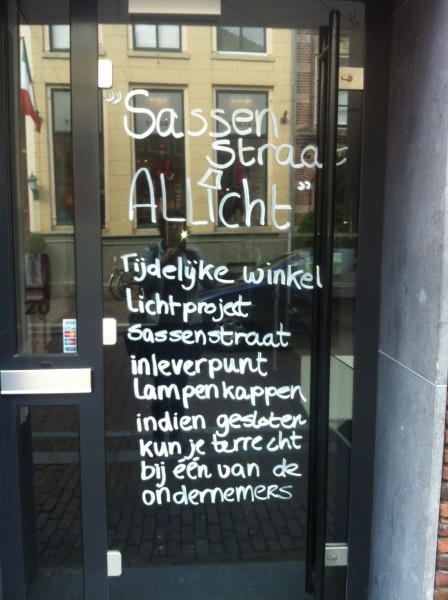 "Sassen
straat
ALLicht"
Tijdelijke winkel
Lichtprojekt
Sassenstraat
inleverpunt
Lampenkappen
indien gesloten
kun je terrecht
bij één van de
ondernemers